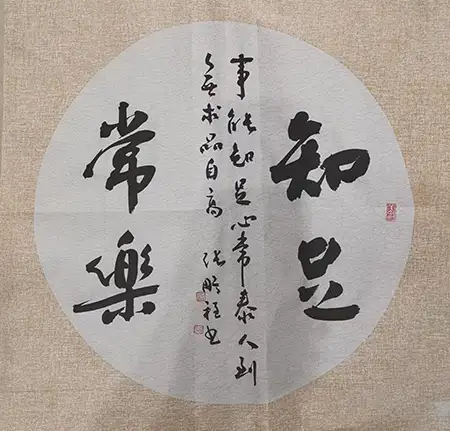 知足
事能知足心常泰人到
無求品自高
張程书
常樂